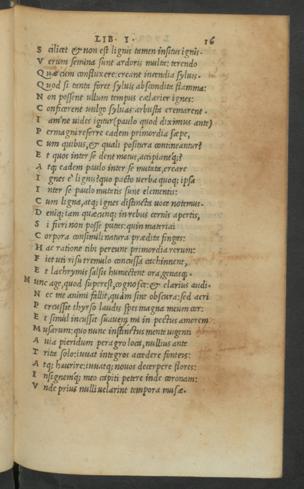 LIB. I. 16
S cilicet & non est lignis tamen insitus ignis.
V erum semina sunt ardoris multa: terendo
Q uae cum confluxere: creant incendia syluis.
Q uod si tanta foret syluis abscondita flamma:
N on possent ullum tempus caelarier ignes:
C onficerent uulgo syluas: arbusta cremarent.
I am'ne uides igitur (paulo quod diximus ante)
P ermagni referre eadem primordia saepe,
C um quibus, & quali positura contineantur?
E t quos inter se dent motus, accipiantq;?
A tq; eadem paulo inter se mutata, creare
I gnes e lignis? quo pacto uerba quoq; ipsa
I nter se paulo mutatis sunt elementis:
C um ligna, atq; ignes distincta uoce notemus.
D eniq; iam quaecunq; in rebus cernis apertis,
S i fieri non posse putas: quin materiai
C orpora consimili natura praedita fingas:
H ac ratione tibi pereunt primordia rerum:
F iet uti risu tremulo concussa cachinnent,
E t lachrymis salsis humectent ora, genasq;.
N unc age, quod superest, cognosce: & clarius audi.
N ec me animi fallit, quàm sint obscura: sed acri
P ercussit thyrso laudis spes magna meum cor:
E t simul incussit suauem mi in pectus amorem
M usarum: quo nunc instinctus mente uigenti
A uia pieridum peragro loca, nullius ante
T rita solo: iuuat integros accedere funteis:
A tq; haurire: iuuatq; nouos decerpere flores:
I nsignemq; meo capiti petere inde coronam:
V nde prius nulli uelarint tempora musae.